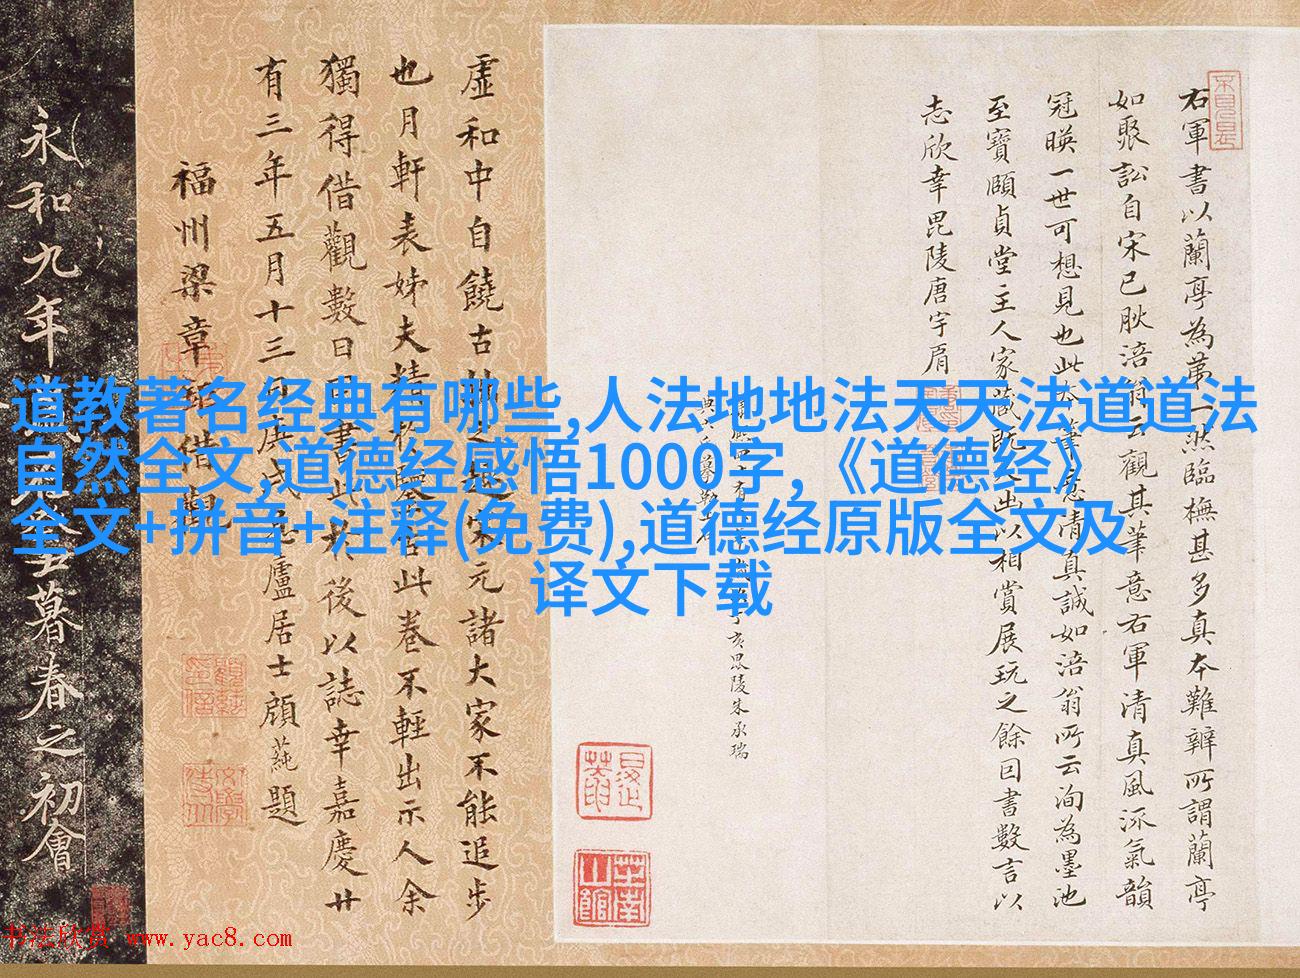 道教著名经典有哪些,人法地地法天天法道道法
自然全文,道德经感悟1000字,《道德经》
全文+拼音+注释(免费),道德经原版全文及
译文下载
右軍書以蘭亭為第一然臨橅甚多真本難辨所謂蘭亭
如聚訟自宋已
涪翁云觀其筆意右軍清真風流氣韻
冠暎一世可想見也此
筆意清真誠如涪翁所云洵為墨池
至寶頤貞堂主人家藏既
出以相賞展玩之餘因書數言以
志欣幸毘陵唐宇肩
亥毘陵朱承瑞
虛和中自饒古
宋元諸大家不能追步
也月軒表姊夫精
鑒
此卷不輕出示人余
獨得借觀數日
書此於後以誌幸嘉慶廿
有三年五月十三日庚戌
廬居士顔蒓題
福州梁章鉅借觀
永和九年歲
暮春之初會
书法欣赏 www.yac8.com